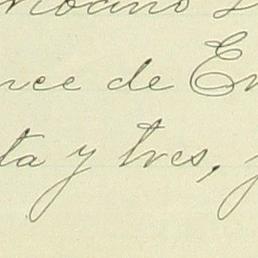 nce de En
ta y tres, y